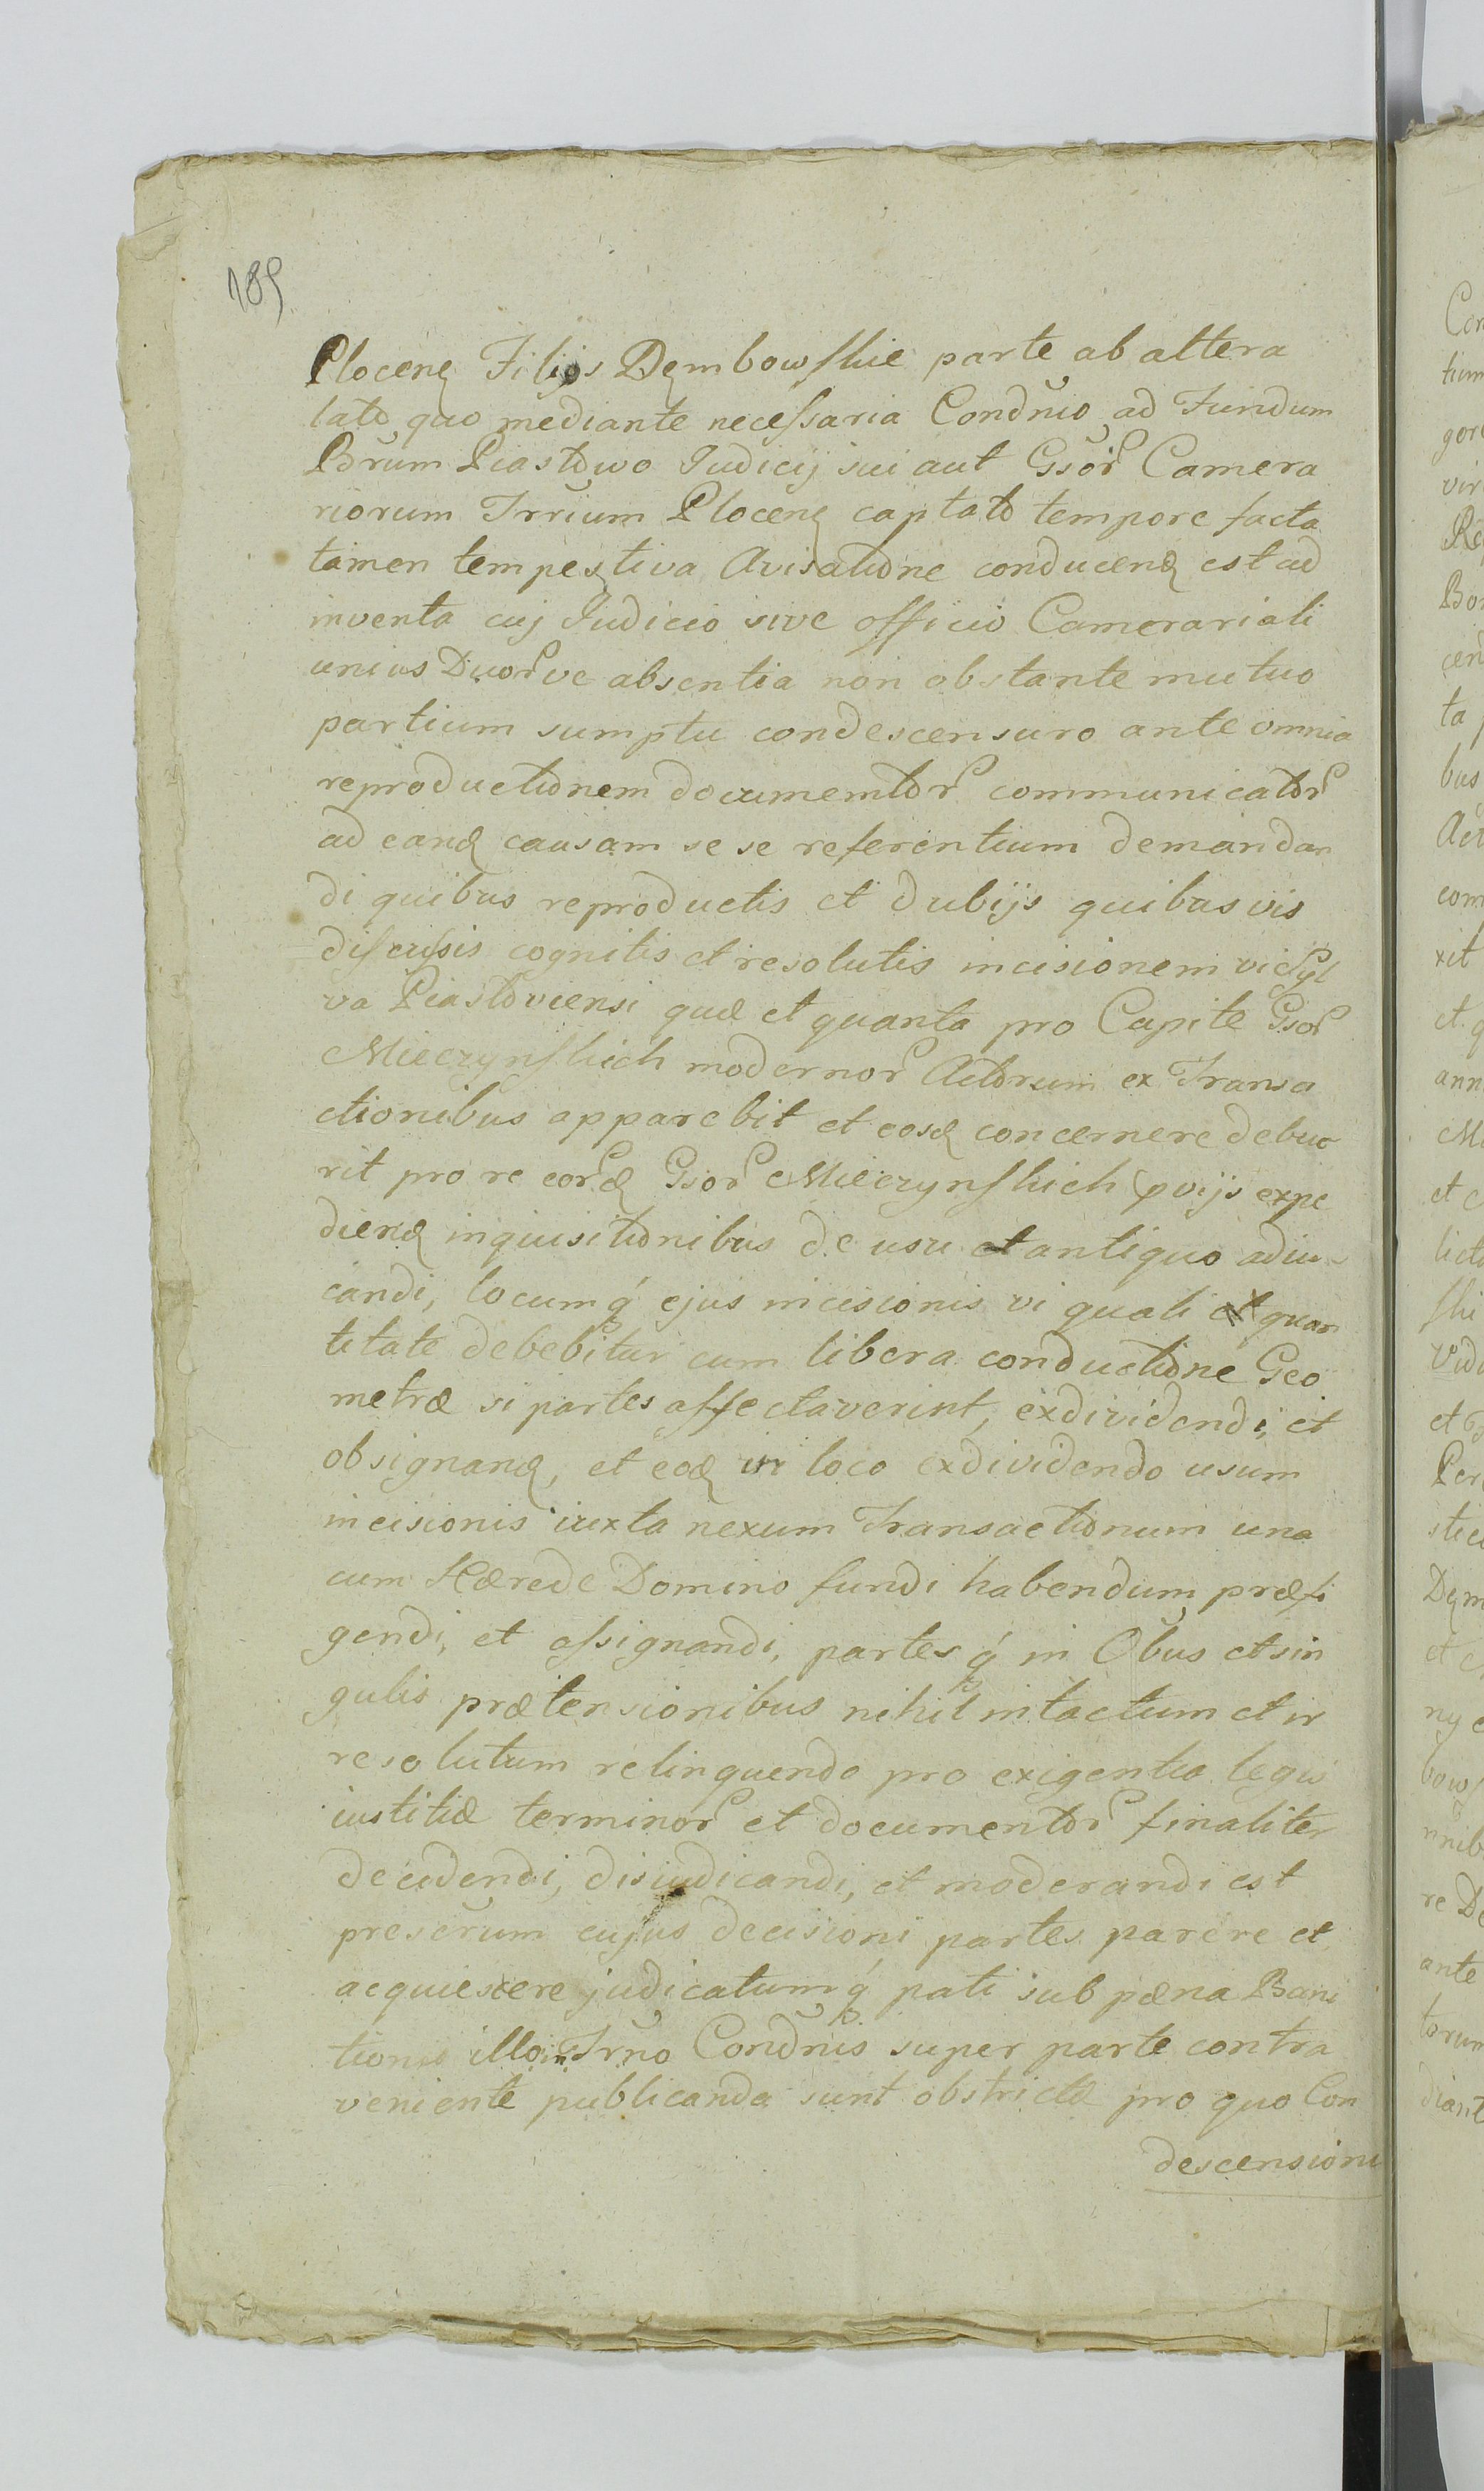 189
Plocenę Filijs Dęmbowskie parte ab altera
lato quo mediante necessaria Condn̄io ad Fundum
Brūm Piastowo Judicij sui aut Gsōr Camera
riorum Trrīum Plocenę captato tempore facta
tamen tempestiva Avisatione conducenę est ad
inventa cuj Judicio sive officio Camerariali
unius Duorve absentia non obstante mutuo
partium sumptu condescensuro ante omnia
reproductionem documentor communicator
ad eandę causam se se referentium demandan
di quibus reproductis et dubijs quibusvis
discussis cognitis et resolutis incisionem vi Syl
va Piastoviensi quæ et quanta pro Capite Gsor
Mieczynskich modernor Actorum ex Transa
ctionibus apparebit et eosdę concernere debue
rit pro re eordę Gsor Mieczynskich pvijs expe
dienę inquisitionibus de usu et antiquo adiu
candi, locumq́ ejus incisionis vi quali et quan
titate debebitur cum libera conductione Geo
metræ si partes affectaverint, exdividendi, et
obsignandę, et eodę in loco exdividendo usum
incisionis iuxta nexum Transactionum una
cum Hærede Domino fundi habendum præfi
gendi, et assignandi, partesq́ in Ōbus et sin
gulis prætensionibus nihil intactum et ir
resolutum relinquendo pro exigentia legis
iustitiæ terminor et documentor finaliter
decidendi, disiudicandi, et moderandi est
preserūm cujus decisioni partes parere et
acquiescere judicatumq́ pati sub pæna Bani
tionis illo in Trn̄o Condn̄is super parte contra
veniente publicanda sunt obstrictæ pro quo Con
descensioni